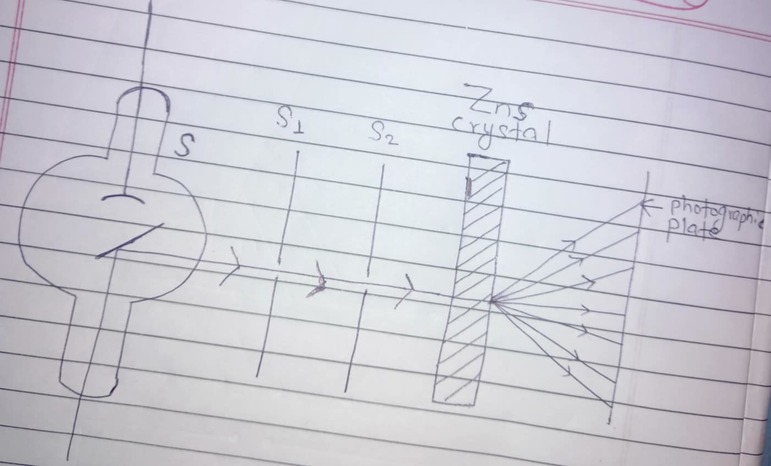 S
S1
S2
ZnS
crystal
photographic
plate